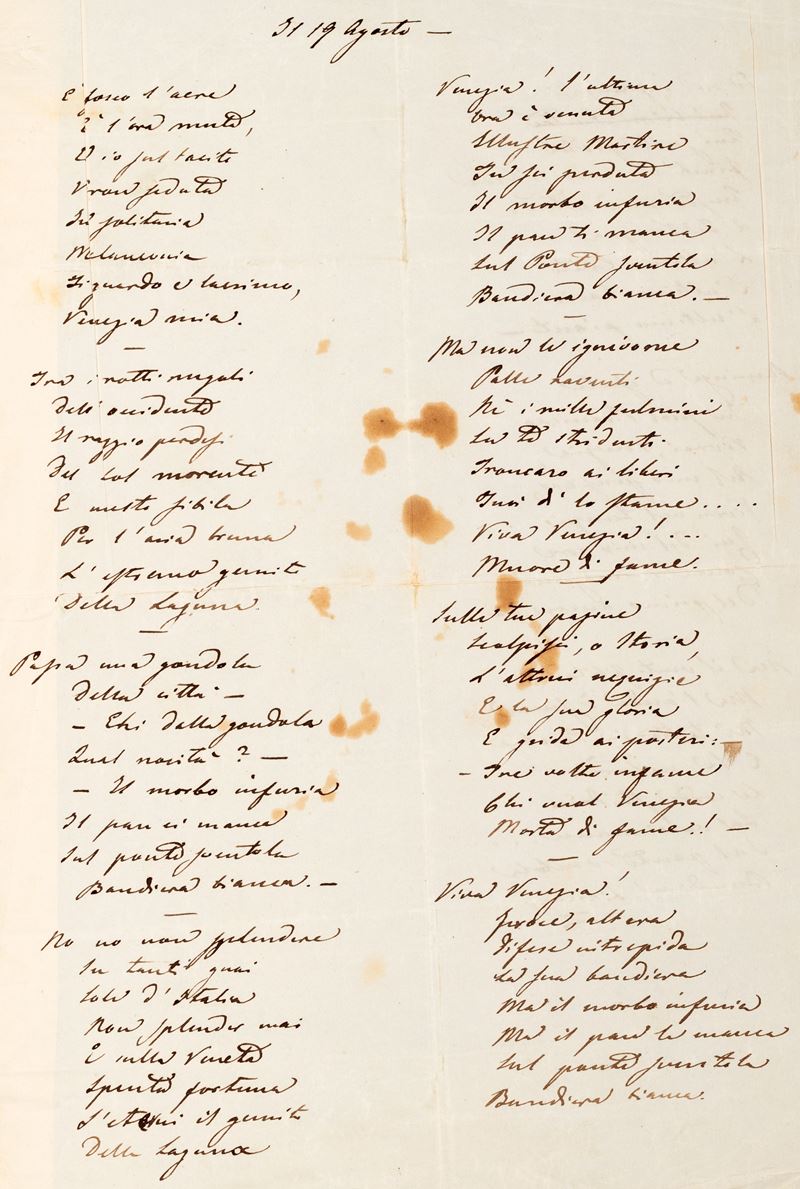 Il 19 Agosto —
È fosco l'aere
È l'ora muta,
Ed io sul tacito
Veron seduta
In solitaria
Melanconia
Ti guardo e lacrimo,
Venezia mia. —
Tra i rotti nugoli
Dell' occidente
Il raggio perdesi
Del sol morente
E mesto sibila
Per l'aria bruna
L' estremo gemito
Della Laguna.
Passa una gondola
Della città —
— Ehi dalla gondola
Qual novità? —
— Il morbo infuria
Il pan ci manca
Sul ponte sventola
Bandiera bianca. —
No no non splendere
Su tanti guai
Sole d'Italia
Non splender mai
E sulla Veneta
Spenta fortuna
S'eterni il gemito
Della Laguna
Venezia! l'ultima
ora è venuta
Illustre Martire
Tu sei perduta
Il morbo infuria
Il pan ti manca
Sul Ponte sventola
Bandiera bianca. —
Ma non le ignivome
Palle roventi
Nè i mille fulmini
Su te stridenti
Troncaro ai liberi
Tuoi dì lo stame....
Viva Venezia!...
Muore di fame.
Sulle tue pagine
Scolpisci, o Storia,
L'altrui nequizie
E la sua gloria
E grida ai posteri:
— Tre volte infame
Chi vuol Venezia
Morta di fame.! —
Viva Venezia!
feroce, altera
Difese intrepida
La sua bandiera
Ma il morbo infuria
Ma il pan le manca
Sul ponte sventola
Bandiera bianca.